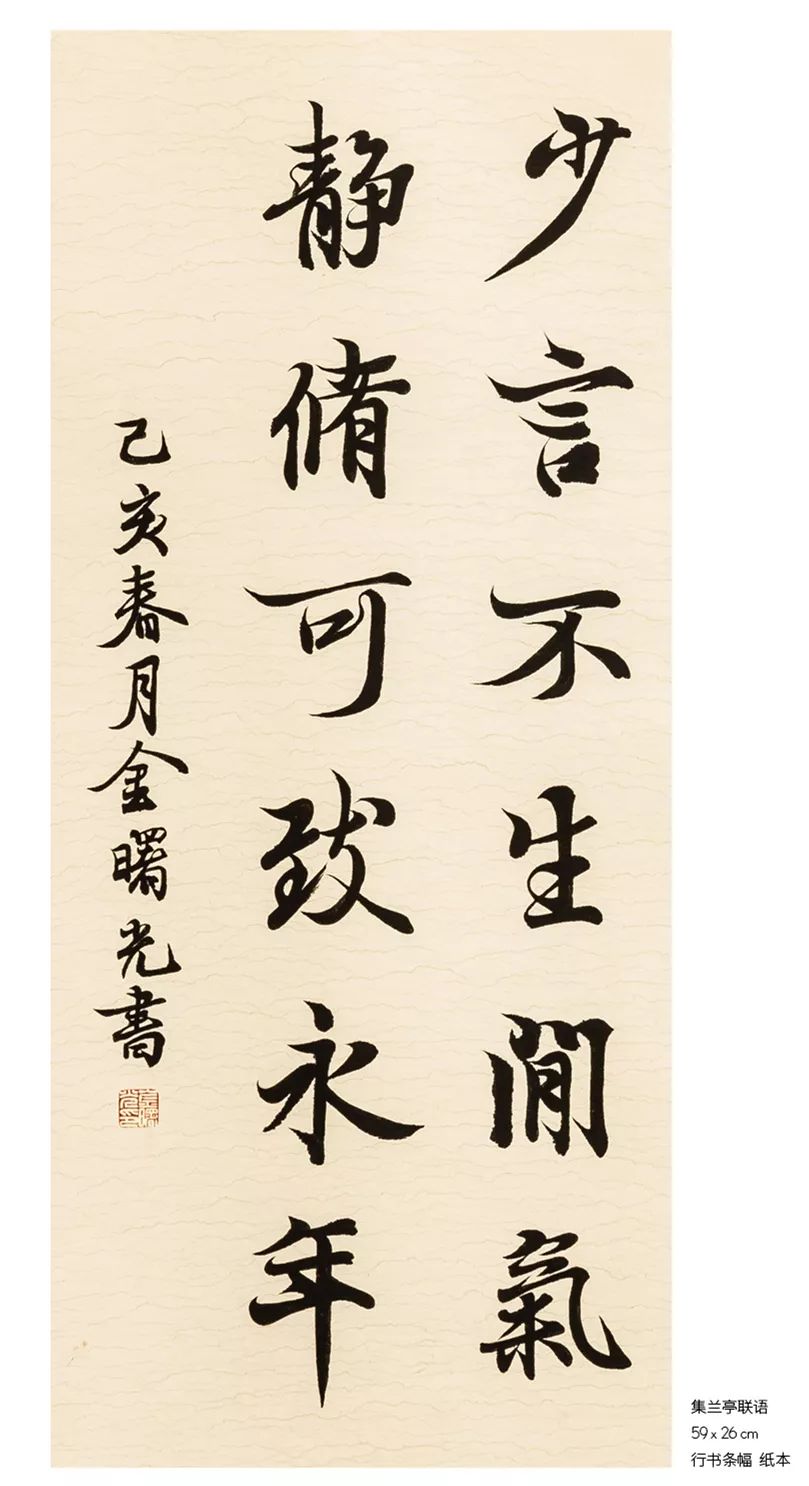 少言不生閒氣
静脩可致永年
己亥春月金曙光書
集兰亭联语
59 x 26 cm
行书条幅 纸本